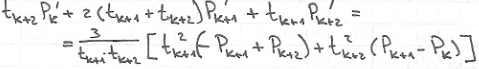 t_{k+2} P'_k + 2 (t_{k+1} + t_{k+2}) P'_{k+1} + t_{k+1} P'_{k+2} =
= \frac{3}{t_{k+1} \cdot t_{k+2}} [ t^2_{k+1} (-P_{k+1} + P_{k+2}) + t^2_{k+2} (P_{k+1} - P_k) ]